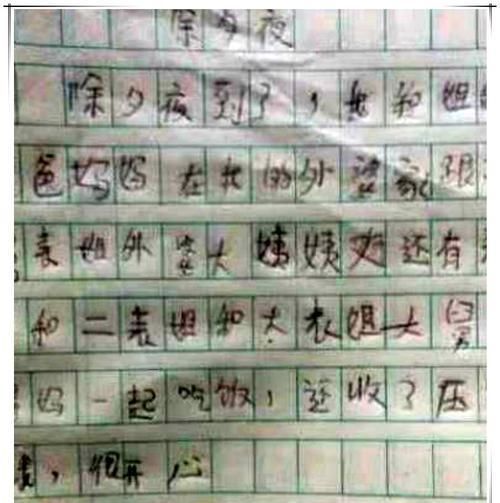 除夕夜
除夕夜到了，我和姐
爸妈妈在我的外婆家跟
表姐外婆大姨姨丈还有
和二表姐和大表姐大舅
妈一起吃饭，还收了压
，很开心